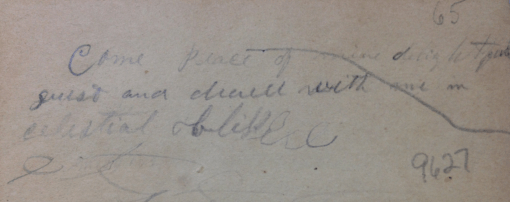 65
Come Peace of mine delightful
guest and dwell with me in
celestial bliss
9627